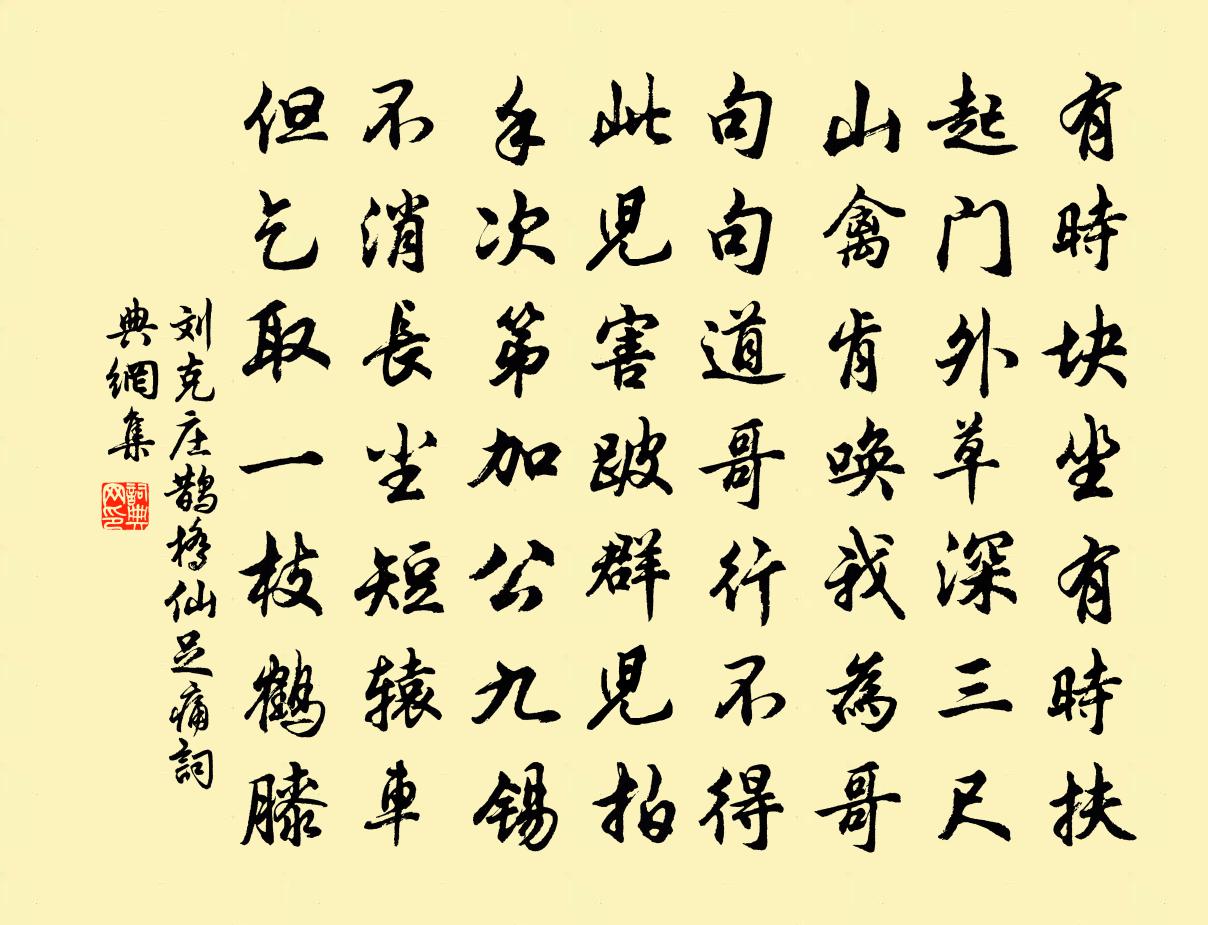 有時块坐有時扶
起门外草深三尺
山禽肯唤我為哥
句句道哥行不得
此児害跛群児拍
手次第加公九锡
不消長尘短辕車
但乞取一枝鶴膝
刘克庄鹊橋仙足痛詞
典網集
詞典网印